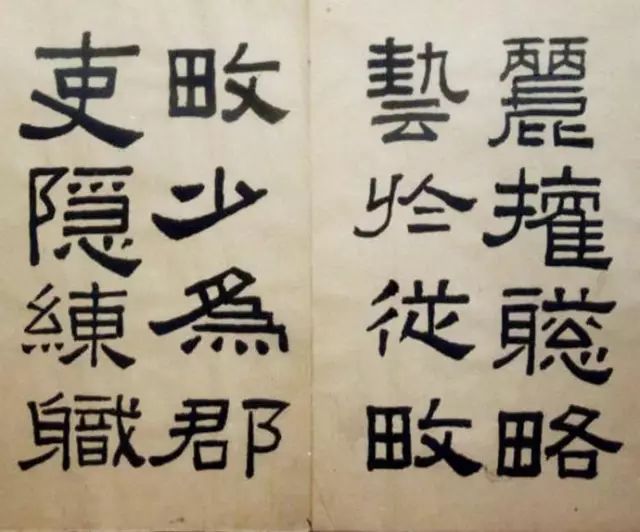 麗攉聦略
藝於從畋
畋少為郡
吏隱練職